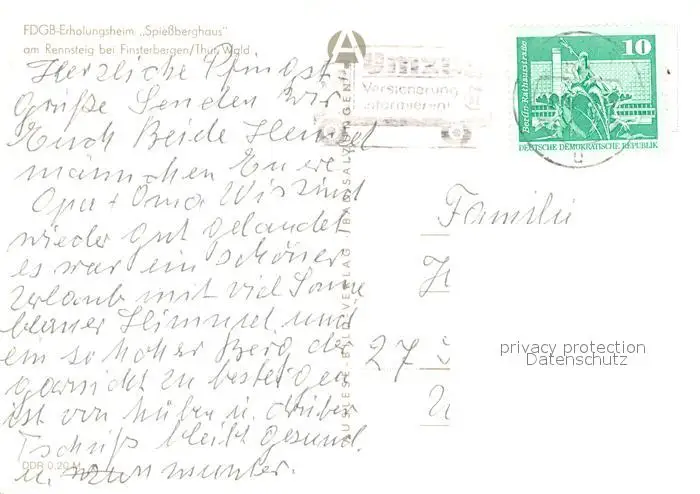 FDGB-Erholungsheim „Spießberghaus"
am Rennsteig bei Finsterbergen/Thür. Wald
Herzliche Pfingst
grüße Senden Wir
Euch Beide Heinzel
männchen Eure
Opa + Oma Wir sind
wieder gut gelandet
es war ein schöner
Urlaub mit viel Sonne
blauer Himmel und
ein so hoher Berg der
garnicht zu besteigen
ist von hüben u. drüber
Tschüß bleibt gesund
u. munter.
DDR 0,20 M
AUSLESE-BILD-VERLAG / BAD SALZUNGEN
Versicherung
informieren!
10
Berlin-Rathausstraße
DEUTSCHE DEMOKRATISCHE REPUBLIK
Familie
H
27
privacy protection
Datenschutz